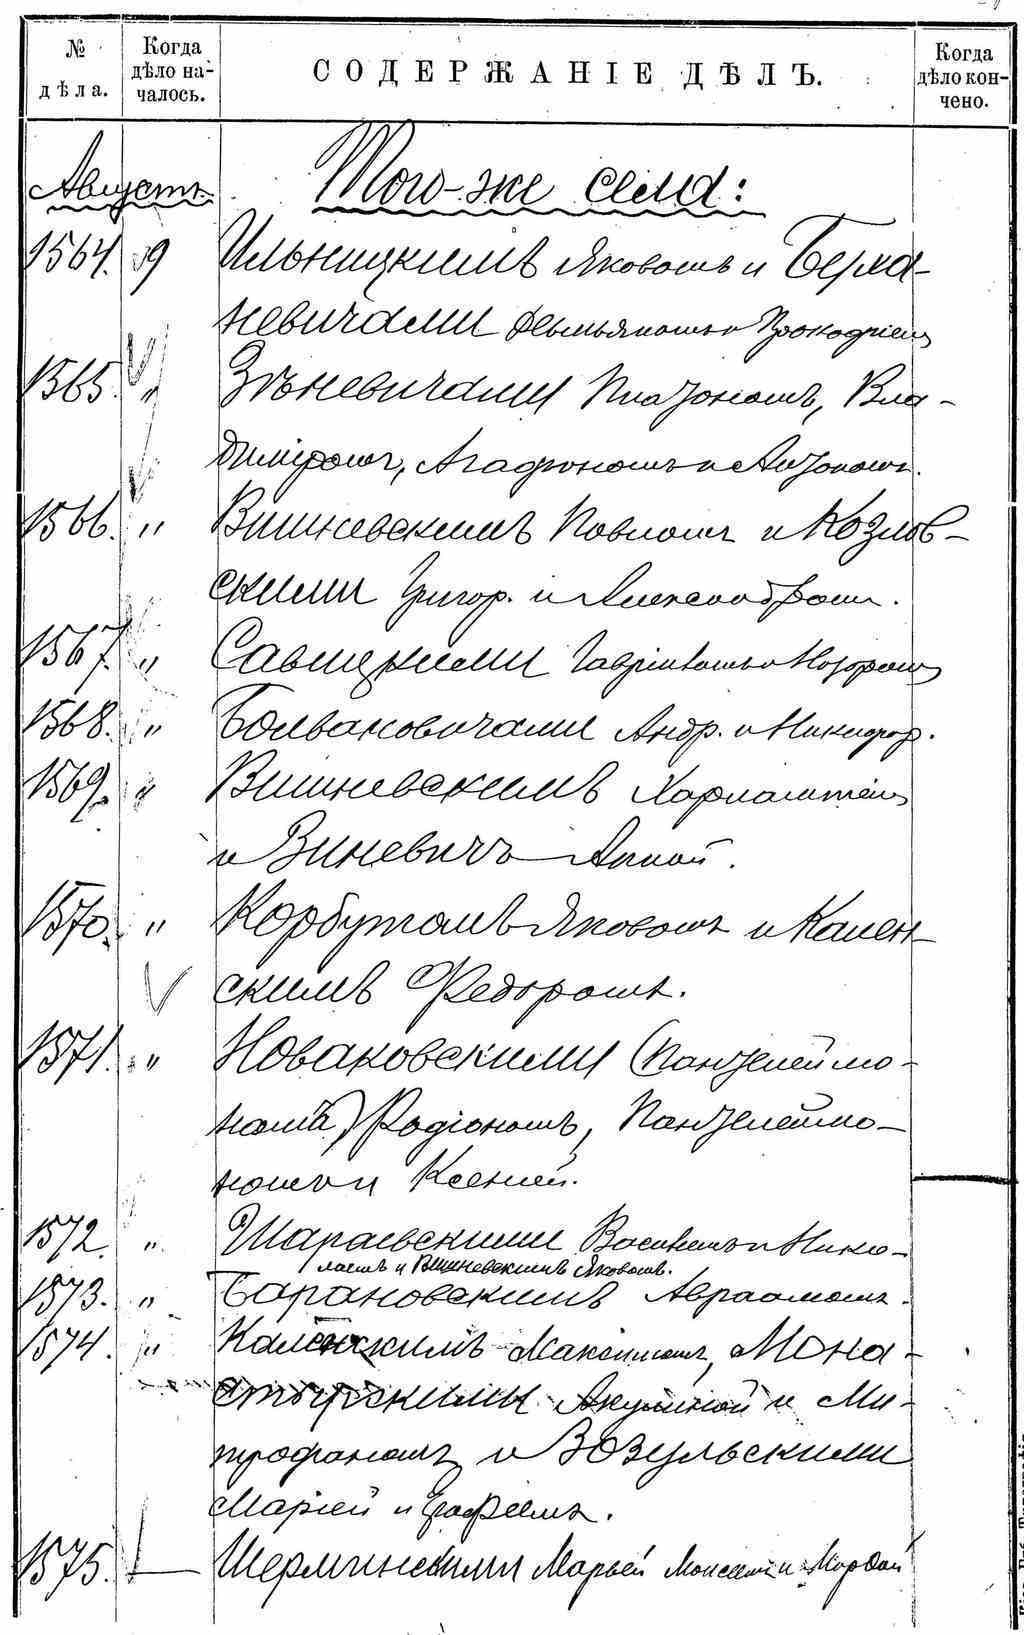 № дѣла.
Когда дѣло началось.
СОДЕРЖАНІЕ ДѢЛЪ.
Когда дѣло кончено.
Августъ. Того-же села:
1564. 9 Ильницкимъ Яковомъ и Берма-
невичами Демьяномъ и Прокофіем
1565. " Зѣневичами Платономъ, Вла-
диміромъ, Агафономъ и Антономъ.
1566. " Вишневскимъ Павломъ и Козлов-
скими Григор. и Александромъ.
1567. " Савицкими Гавріиломъ и Назаромъ
1568. " Болвановичами Андр. и Никифор.
1569. " Вишневскимъ Харлампіемъ
и Виневичъ Анной.
1570. " Корбутомъ Яковомъ и Кален-
скимъ Федоромъ.
1571. " Новаковскими (Пантелеймо-
номъ) Родіономъ, Пантелеймо-
номъ и Ксеніей.
1572. " Шараевскими Василіемъ и Нико-
лаемъ и Вишневскимъ Яковомъ.
1573. " Барановскимъ Авраамомъ.
1574. " Каленскимъ Максимомъ, Мона-
стырскими Акулиной и Ми-
трофаномъ и Возульскими
Маріей и
1575. — Шерминскими Марьей Моисеем и